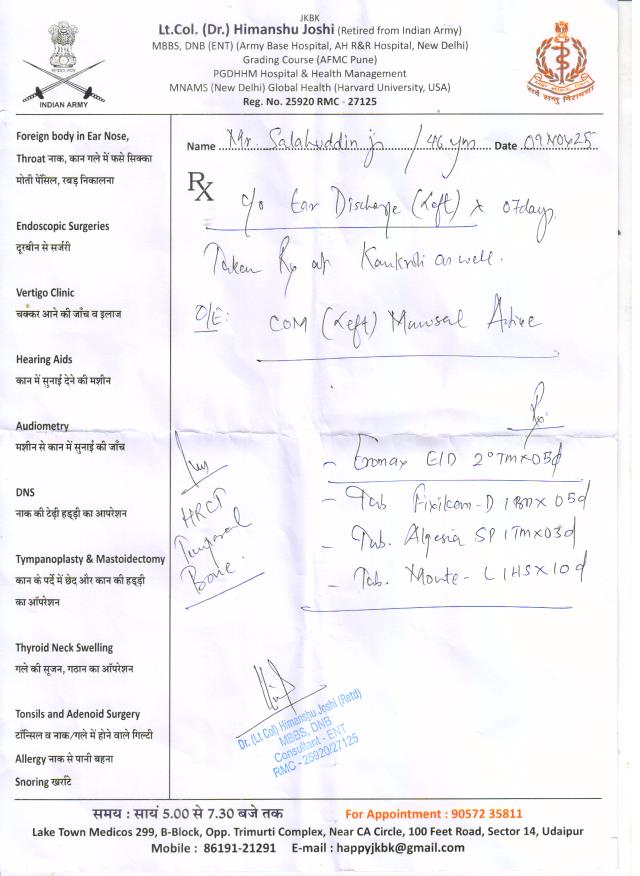 JKBK
Lt.Col. (Dr.) Himanshu Joshi (Retired from Indian Army)
MBBS, DNB (ENT) (Army Base Hospital, AH R&R Hospital, New Delhi)
Grading Course (AFMC Pune)
PGDHHM Hospital & Health Management
MNAMS (New Delhi) Global Health (Harvard University, USA)
Reg. No. 25920 RMC - 27125
INDIAN ARMY
सर्वे सन्तु निरामया
Name Mr. Salahuddin ji / 46 yrs Date
Rx
c/o Ear Discharge (Left) x 07days
Taken Rx at Kankroli as well.
O/E: COM (Left) Mucosal Active
Rx
Adv
HRCT
Temporal
Bone.
- EID 2°TM x 05d
- Tab -D 1BD x 05d
- Tab. Algesia SP 1TM x 03d
- Tab. Monte-L 1HS x 10d
Foreign body in Ear Nose,
Throat नाक, कान गले में फसे सिक्का
मोती पेंसिल, रबड़ निकालना
Endoscopic Surgeries
दूरबीन से सर्जरी
Vertigo Clinic
चक्कर आने की जाँच व इलाज
Hearing Aids
कान में सुनाई देने की मशीन
Audiometry
मशीन से कान में सुनाई की जाँच
DNS
नाक की टेढ़ी हड्डी का आपरेशन
Tympanoplasty & Mastoidectomy
कान के पर्दे में छेद और कान की हड्डी
का ऑपरेशन
Thyroid Neck Swelling
गले की सूजन, गठान का ऑपरेशन
Tonsils and Adenoid Surgery
टॉन्सिल व नाक/गले में होने वाले गिल्टी
Allergy नाक से पानी बहना
Snoring खर्राटे
Dr. (Lt Col) Himanshu Joshi (Retd)
MBBS, DNB
Consultant - ENT
RMC - 25920/27125
समय : सायं 5.00 से 7.30 बजे तक For Appointment : 90572 35811
Lake Town Medicos 299, B-Block, Opp. Trimurti Complex, Near CA Circle, 100 Feet Road, Sector 14, Udaipur
Mobile : 86191-21291 E-mail : happyjkbk@gmail.com